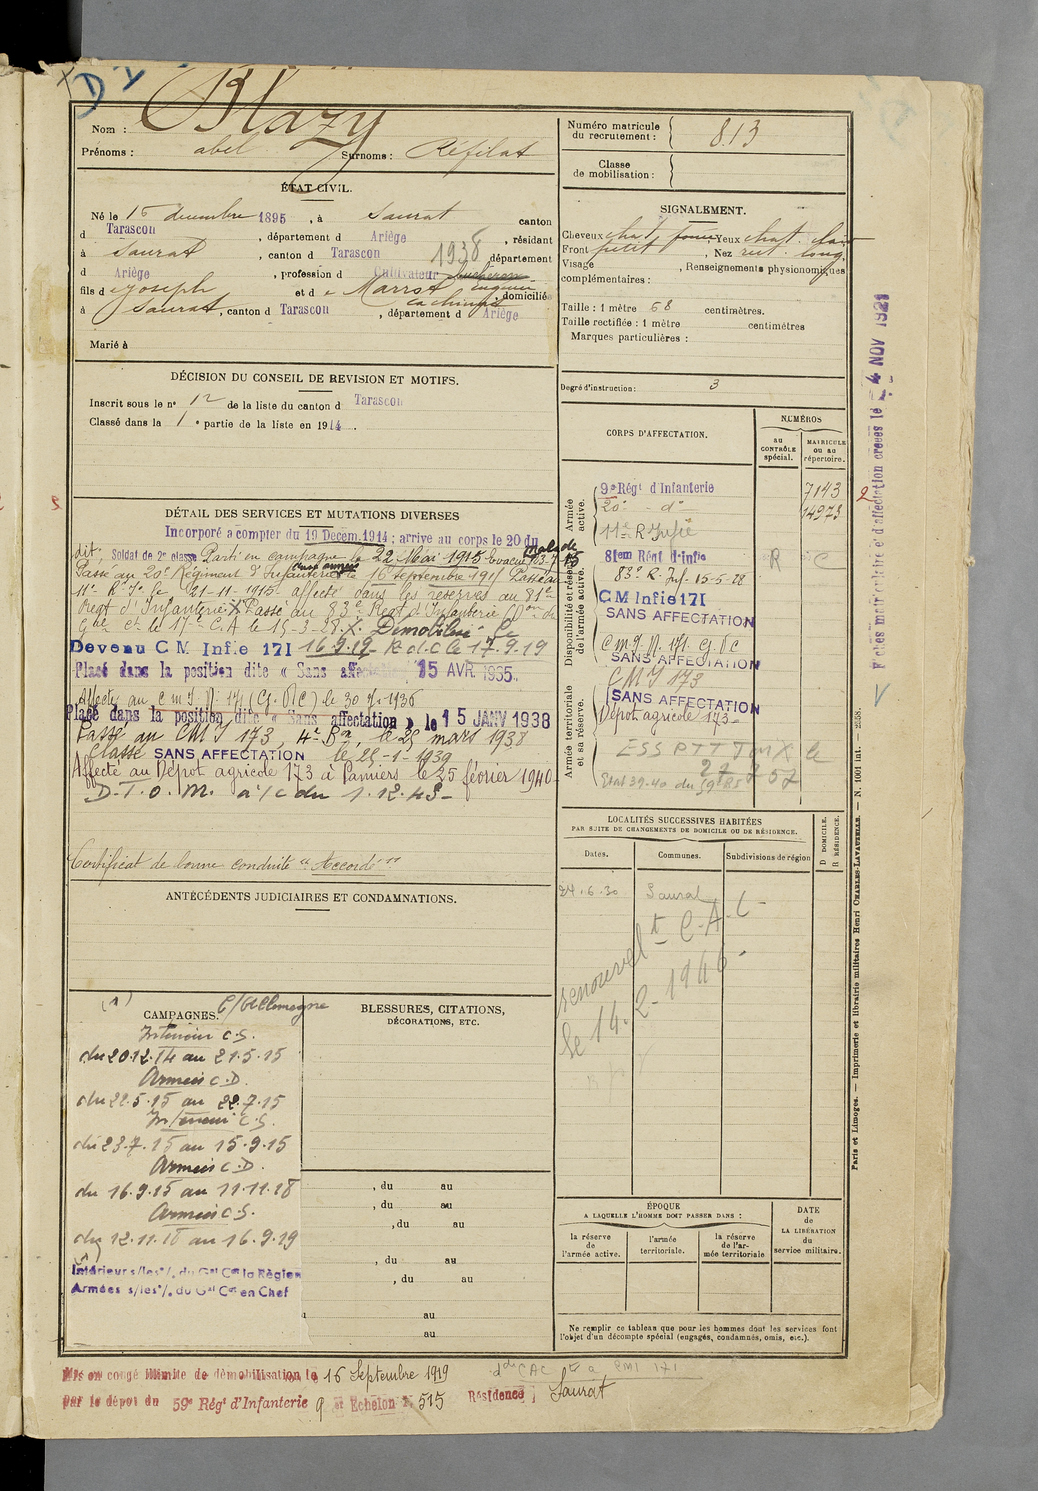 D
Blazy
Nom :
Prénoms : abel Surnoms : Réfilat
ÉTAT CIVIL.
Né le 15 decembre 1895, à Saurat canton
d Tarascon, département d Ariège, résidant
à Saurat, canton d Tarascon 1938 département
d Ariège, profession d Cultivateur
fils de Joseph et de Marrot Eugénie, domiciliés
à Saurat, canton d Tarascon, département d Ariège
Marié à
DÉCISION DU CONSEIL DE REVISION ET MOTIFS.
Inscrit sous le n° 12 de la liste du canton d Tarascon
Classé dans la 1e partie de la liste en 1914.
DÉTAIL DES SERVICES ET MUTATIONS DIVERSES
Incorporé a compter du 19 Décem. 1914; arrive au corps le 20 du
dit; Soldat de 2e classe Parti en campagne le 22 Mai 1915 Evacué malade
Passé au 20e Régiment d'Infanterie le 16 Septembre 1915 Passé au
11e R.I. le 21-11-1915 affecté dans les réserves au 81e
Regt d'Infanterie X Passé au 83e Regt d'Infanterie
et le 17e C.A le 15-3-28 X. Démobilisé le
Devenu C M Infie 171 16.9.19 R.d.c le 17.9.19
Placé dans la position dite « Sans affectation 15 AVR 1935
Affecté au C m I N. 171 (G. Vc) le 30 1936
Placé dans la position dite « Sans affectation » le 15 JANV 1938
Passé au CMI 173 4e Bon, le 25 mars 1938
Classé SANS AFFECTATION le 25-1-1939
Affecté au Dépot agricole 173 à Pamiers le 25 février 1940
D.T.O.M. a/c du 1.12.43
Certificat de bonne conduite "Accordé"
ANTÉCÉDENTS JUDICIAIRES ET CONDAMNATIONS.
CAMPAGNES. C/Allemagne
Intérieur C.S.
du 20.12.14 au 21.5.15
Armées C.D.
du 22.5.15 au 22.7.15
Intérieur C.S.
du 23.7.15 au 15.9.15
Armées C.D.
du 16.9.15 au 11.11.18
Armées C.S.
du 12.11.18 au 16.9.19
Intérieur s/les °/. du Gal Ct la Région
Armées s/les °/. du Gal Ct en Chef
BLESSURES, CITATIONS,
DÉCORATIONS, ETC.
, du au
, du au
, du au
, du au
, du au
au
au
Numéro matricule
du recrutement : 813
Classe
de mobilisation :
SIGNALEMENT.
Cheveux chat. foncé, Yeux chat. clair
Front petit, Nez rect. long.
Visage, Renseignements physionomiques
complémentaires :
Taille : 1 mètre 68 centimètres.
Taille rectifiée : 1 mètre centimètres
Marques particulières :
Degré d'instruction : 3
CORPS D'AFFECTATION.
NUMÉROS
au
CONTRÔLE
spécial.
MATRICULE
ou au
répertoire.
Armée
active.
9e Régt d'Infanterie 7143
20e - d° - 14973
11e R. Infie
Disponibilité et réserve
de l'armée active.
81em Régt d'infie R C
83e R. Inf. 15-5-28
C M Infie 171
SANS AFFECTATION
C m I N. 171. G. Vc
SANS AFFECTATION
Armée territoriale
et sa réserve.
CMI 173
SANS AFFECTATION
Dépot agricole 173
ESS PTT
LOCALITÉS SUCCESSIVES HABITÉES
PAR SUITE DE CHANGEMENTS DE DOMICILE OU DE RÉSIDENCE.
Dates.
Communes.
Subdivisions de région
D DOMICILE.
R RÉSIDENCE.
24.6.30 Saurat
renouvelt C.A.C
le 14.2-1946
ÉPOQUE
A LAQUELLE L'HOMME DOIT PASSER DANS :
la réserve
de
l'armée active.
l'armée
territoriale.
la réserve
de l'ar-
mée territoriale
DATE
de
LA LIBÉRATION
du
service militaire.
Ne remplir ce tableau que pour les hommes dont les services font
l'objet d'un décompte spécial (engagés, condamnés, omis, etc.).
Mis en congé illimité de démobilisation le 16 Septembre 1919
par le dépot du 59e Régt d'Infanterie 9 et Echelon N° 515 Résidence Saurat
4 NOV 1921
Paris et Limoges. — Imprimerie et librairie militaires Henri CHARLES-LAVAUZELLE. — N. 1001 int. — 2558.